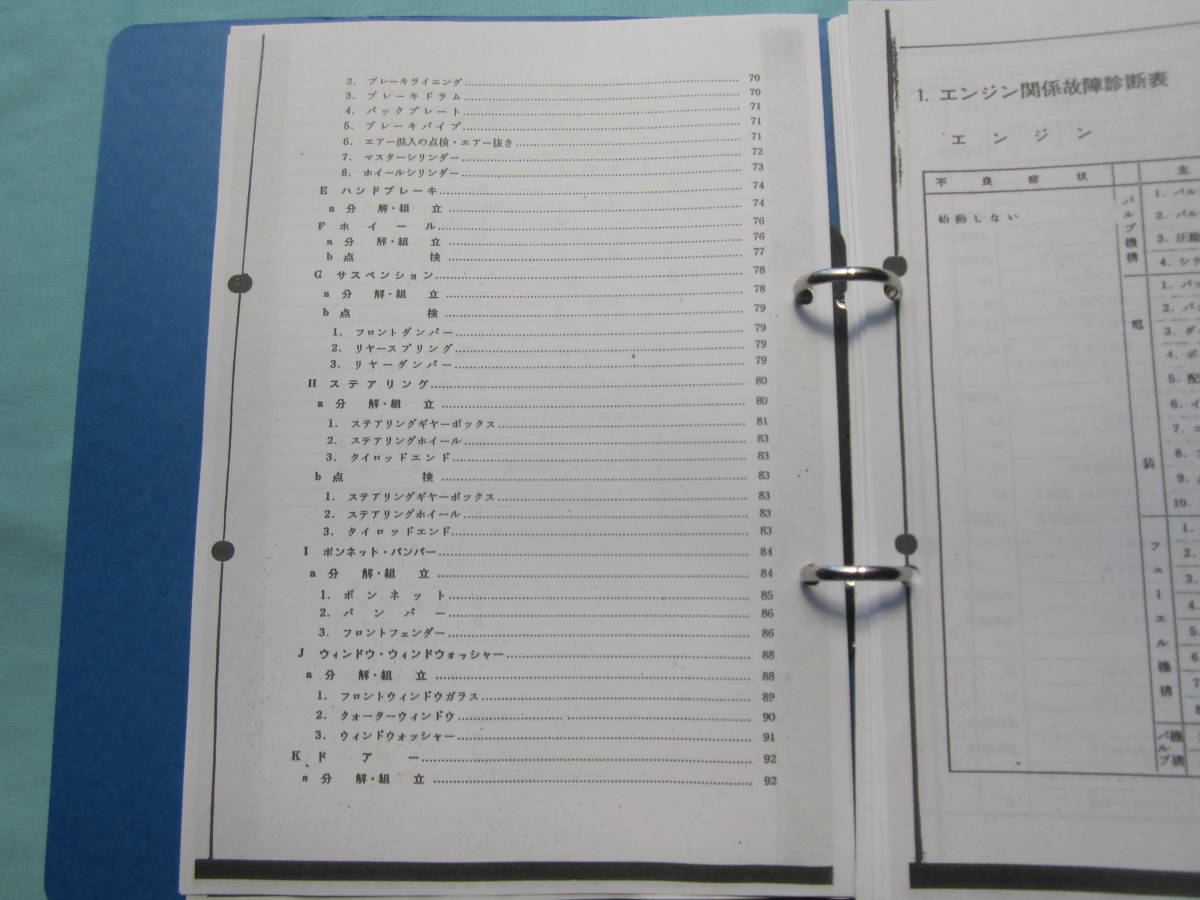 2. ブレーキライニング 70
3. ブレーキドラム 70
4. バックプレート 71
5. ブレーキパイプ 71
6. エアー混入の点検・エアー抜き 71
7. マスターシリンダー 72
8. ホイールシリンダー 73
E ハンドブレーキ 74
a 分解・組立 74
F ホイール 76
a 分解・組立 76
b 点検 77
G サスペンション 78
a 分解・組立 78
b 点検 79
1. フロントダンパー 79
2. リヤースプリング 79
3. リヤーダンパー 79
H ステアリング 80
a 分解・組立 80
1. ステアリングギヤーボックス 81
2. ステアリングホイール 83
3. タイロッドエンド 83
b 点検 83
1. ステアリングギヤーボックス 83
2. ステアリングホイール 83
3. タイロッドエンド 83
I ボンネット・バンパー 84
a 分解・組立 84
1. ボンネット 85
2. バンパー 86
3. フロントフェンダー 86
J ウィンドウ・ウィンドウォッシャー 88
a 分解・組立 88
1. フロントウィンドウガラス 89
2. クォーターウィンドウ 90
3. ウィンドウォッシャー 91
K ドアー 92
a 分解・組立 92
1. エンジン関係故障診断表
エンジン
不良症状
主
始動しない
バルブ機構
1. バル
2. バル
3. 圧縮
4. シリ
電装
1. バッ
2. バッ
3. ダ
4. ポ
5. 配
6. イ
7. コ
8.
9.
10.
フューエル機構
1.
2.
3.
4.
5.
6.
7.
8
バルブ機構